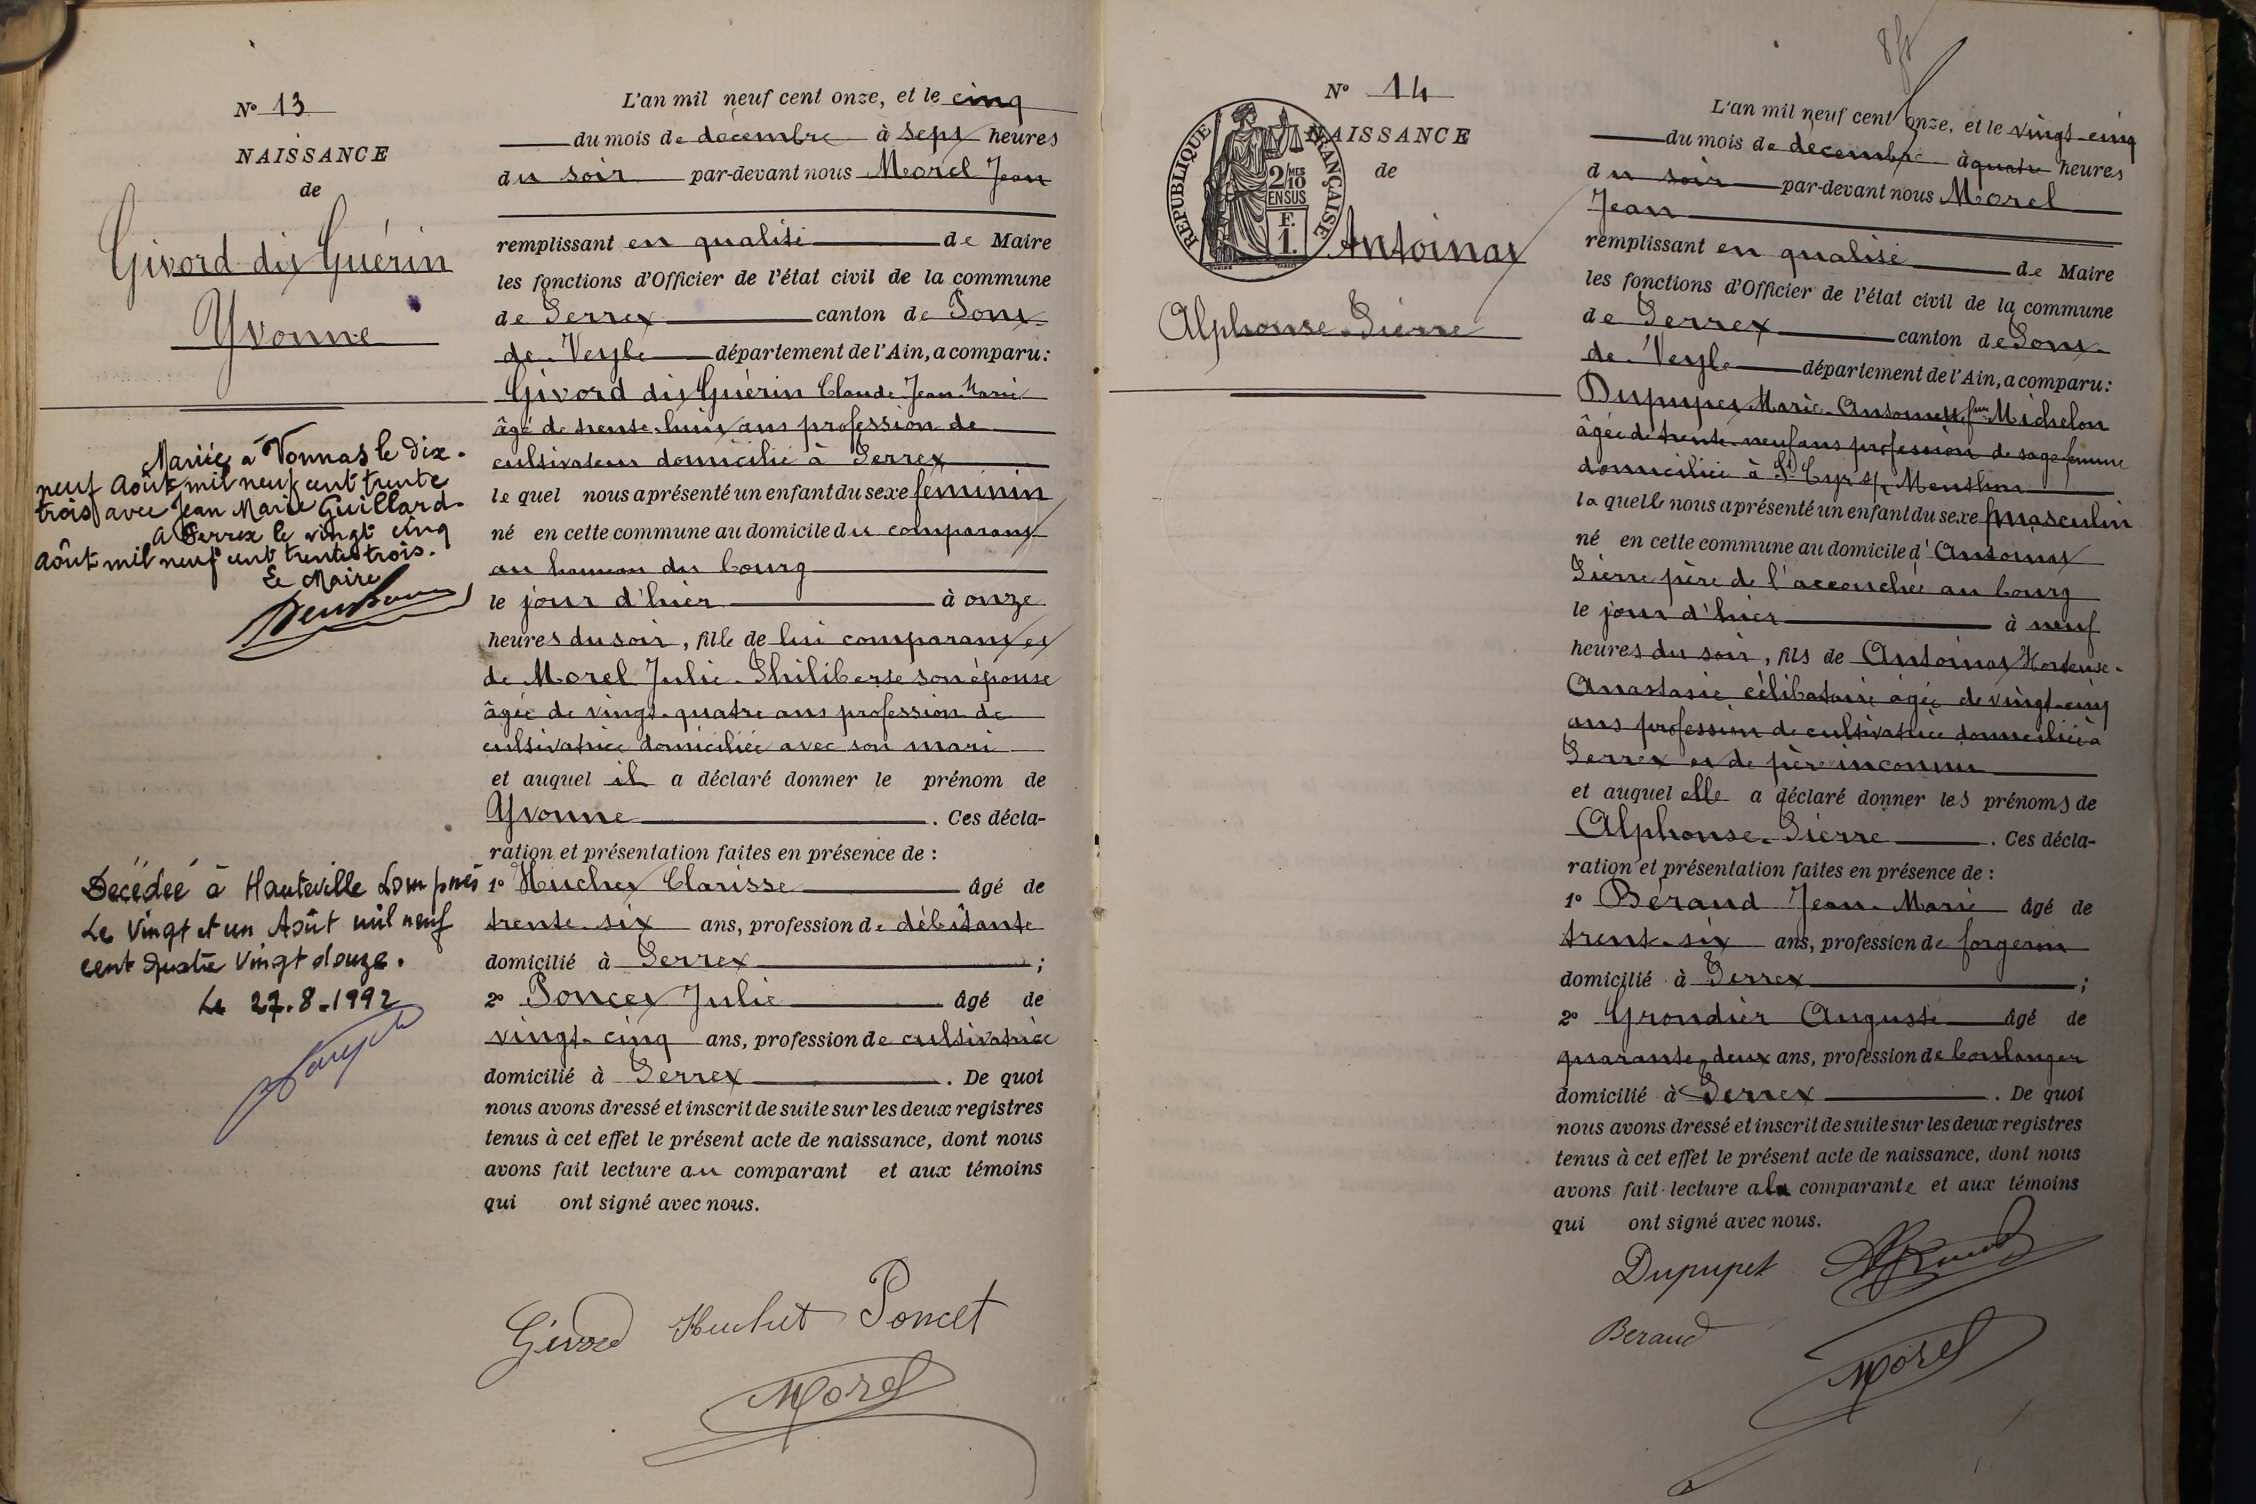 N° 13
NAISSANCE
de
Givord dit Guérin
Yvonne
Mariée à Vonnas le dix-
neuf Août mil neuf cent trente
trois avec Jean Marie Guillard.
A Perrex le vingt cinq
Août mil neuf cent trente trois.
Le Maire
Décédée à Hauteville Lompnes
Le Vingt et un Août mil neuf
cent quatre Vingt douze.
Le 27.8.1992
L'an mil neuf cent onze, et le cinq
du mois de décembre à sept heures
du soir par-devant nous Morel Jean
remplissant en qualité de Maire
les fonctions d'Officier de l'état civil de la commune
de Perrex canton de Pont-
de-Veyle département de l'Ain, a comparu:
Givord dit Guérin Claude Jean Marie
âgé de trente-huit ans profession de
cultivateur domicilié à Perrex
le quel nous a présenté un enfant du sexe féminin
né en cette commune au domicile du comparant
au hameau du bourg
le jour d'hier à onze
heures du soir, fille de lui comparant et
de Morel Julie-Philiberte son épouse
âgée de vingt-quatre ans profession de
cultivatrice domiciliée avec son mari
et auquel il a déclaré donner le prénom de
Yvonne. Ces décla-
ration et présentation faites en présence de:
1° Huchet Clarisse âgé de
trente-six ans, profession de débitante
domicilié à Perrex;
2° Poncet Julie âgé de
vingt-cinq ans, profession de cultivatrice
domicilié à Perrex. De quoi
nous avons dressé et inscrit de suite sur les deux registres
tenus à cet effet le présent acte de naissance, dont nous
avons fait lecture au comparant et aux témoins
qui ont signé avec nous.
Givord Huchet Poncet
Morel
N° 14
NAISSANCE
de
RÉPUBLIQUE FRANÇAISE
2/10 MES
EN SUS
F.
1.
Antoinat
Alphonse-Pierre
L'an mil neuf cent onze, et le vingt-cinq
du mois de décembre à quatre heures
du soir par-devant nous Morel
Jean
remplissant en qualité de Maire
les fonctions d'Officier de l'état civil de la commune
de Perrex canton de Pont-
de-Veyle département de l'Ain, a comparu:
Dupupet Marie-Antoinette fme Michelon
âgée de trente-neuf ans profession de sage-femme
domiciliée à St Cyr s/ Menthon
la quelle nous a présenté un enfant du sexe masculin
né en cette commune au domicile d'Antoinat
Pierre père de l'accouchée au bourg
le jour d'hier à neuf
heures du soir, fils de Antoinat Hortense-
Anastasie célibataire âgée de vingt-cinq
ans profession de cultivatrice domiciliée à
Perrex et de père inconnu
et auquel elle a déclaré donner les prénoms de
Alphonse-Pierre. Ces décla-
ration et présentation faites en présence de:
1° Bérand Jean-Marie âgé de
trente-six ans, profession de forgeron
domicilié à Perrex;
2° Grondier Auguste âgé de
quarante-deux ans, profession de boulanger
domicilié à Perrex. De quoi
nous avons dressé et inscrit de suite sur les deux registres
tenus à cet effet le présent acte de naissance, dont nous
avons fait lecture a la comparante et aux témoins
qui ont signé avec nous.
Dupupet
Beraud
Morel